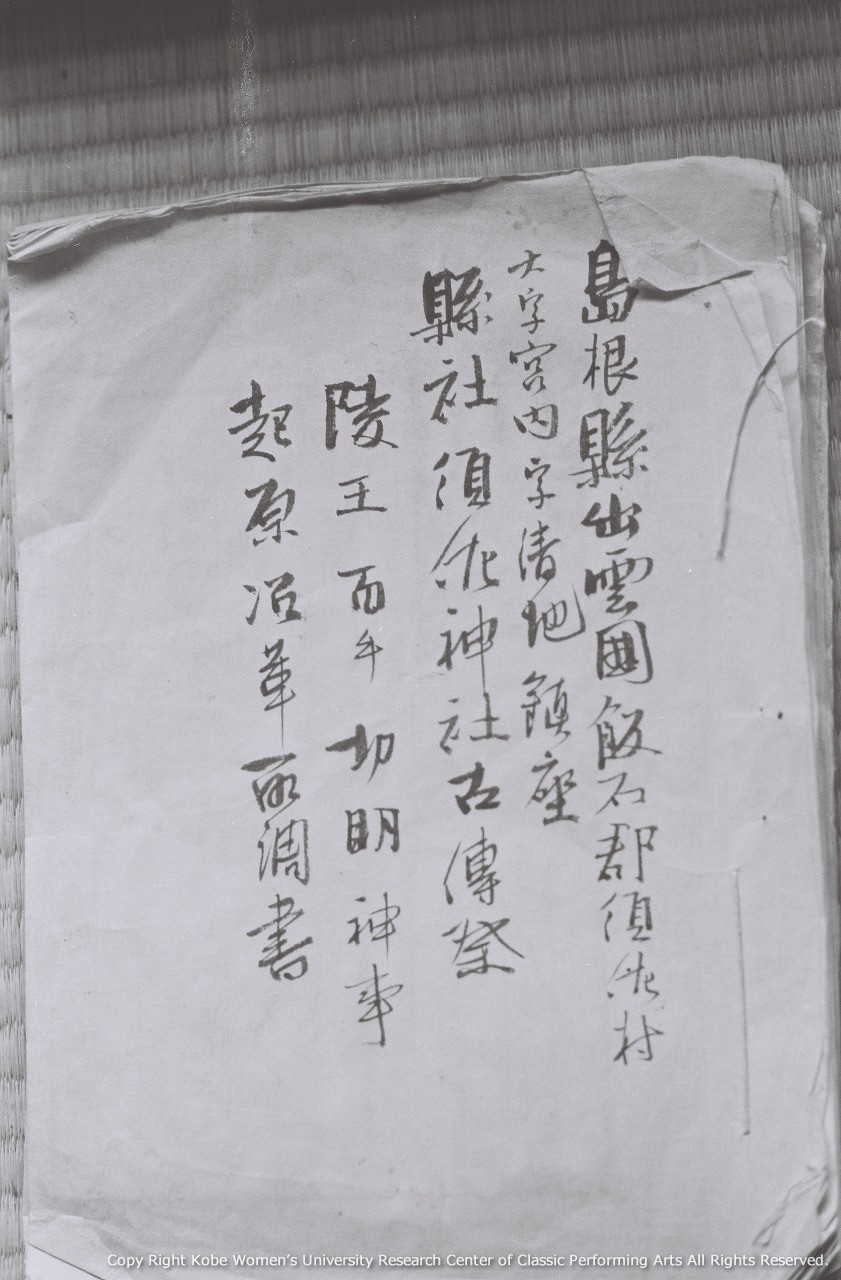 島根縣出雲國飯石郡須佐村
大字宮内字清地鎮座
縣社須佐神社古傳祭
陵王百手切明神事
起原沿革取調書
Copy Right Kobe Women's University Research Center of Classic Performing Arts All Rights Reserved.